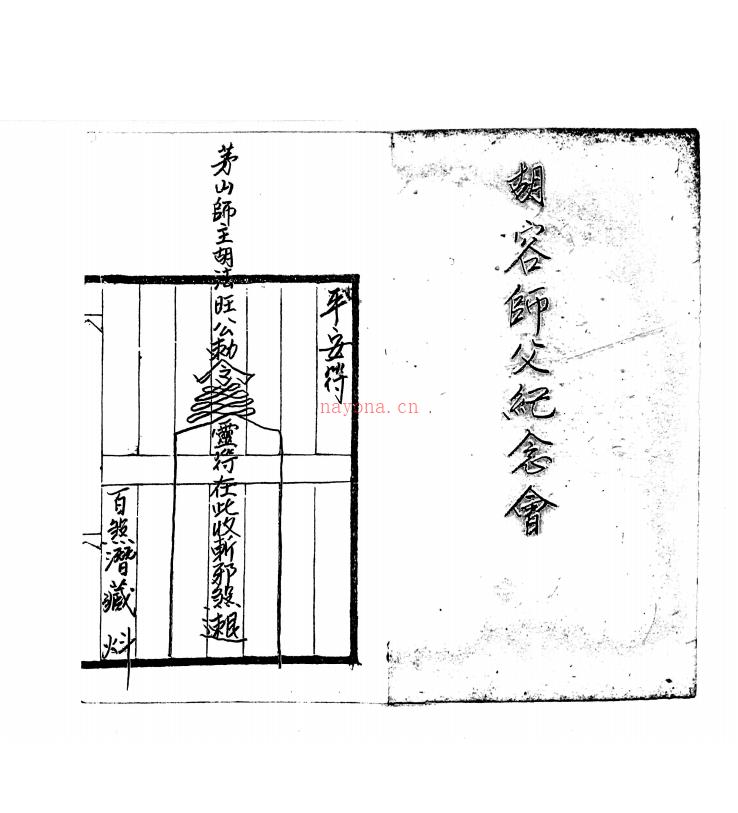 胡容師父紀念會
平安符
茅山師主胡法旺公勅令靈符在此收斬邪煞速退
百煞潛藏
nayona.cn